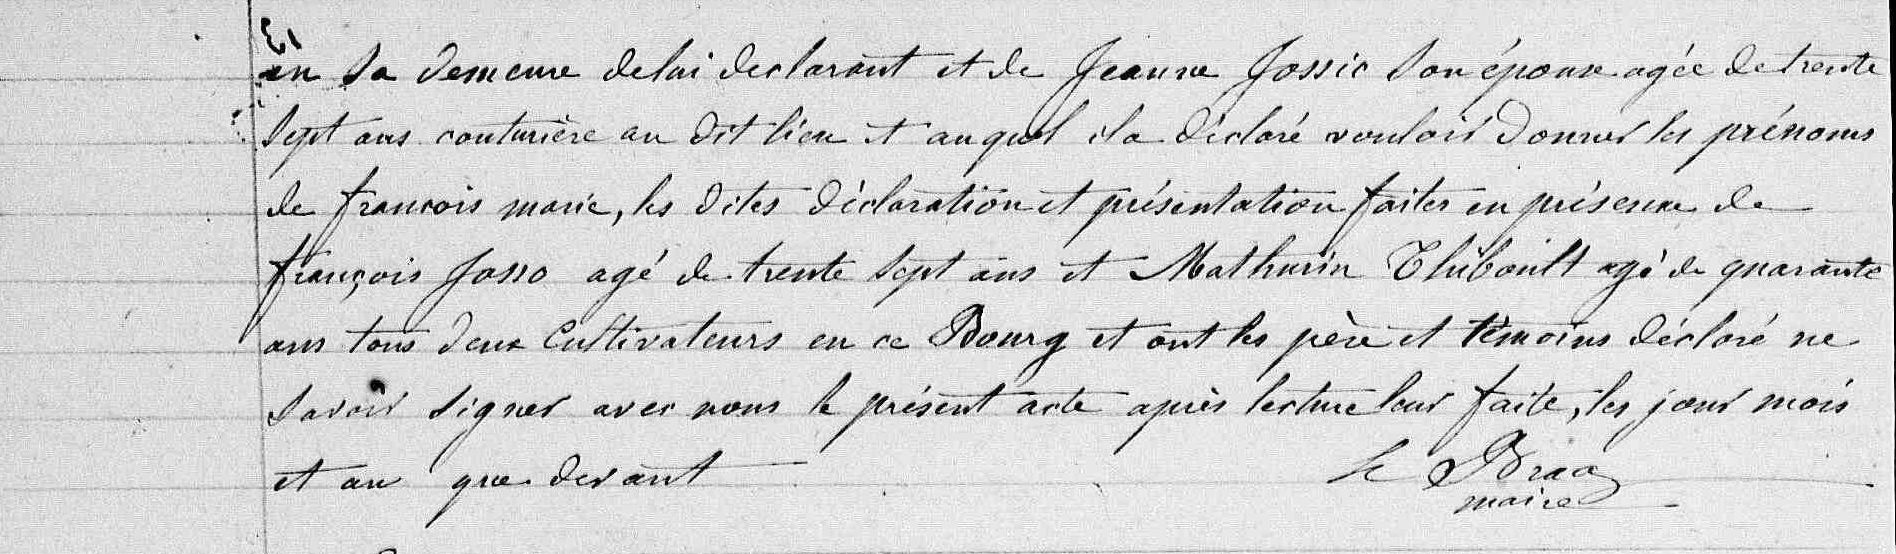 en sa demeure de lui declarant et de Jeanne Jossic son épouse agée de trente
sept ans couturière au dit lieu et auquel il a déclaré vouloir donner les prénoms
de francois marie, les dites déclaration et présentation faites en présence de
françois Josso agé de trente sept ans et Mathurin Thibault agé de quarante
ans tous deux Cultivateurs en ce Bourg et ont les père et témoins déclaré ne
savoir signer avec nous le présent acte après lecture leur faite, les jour mois
et an que devant
Le
maire